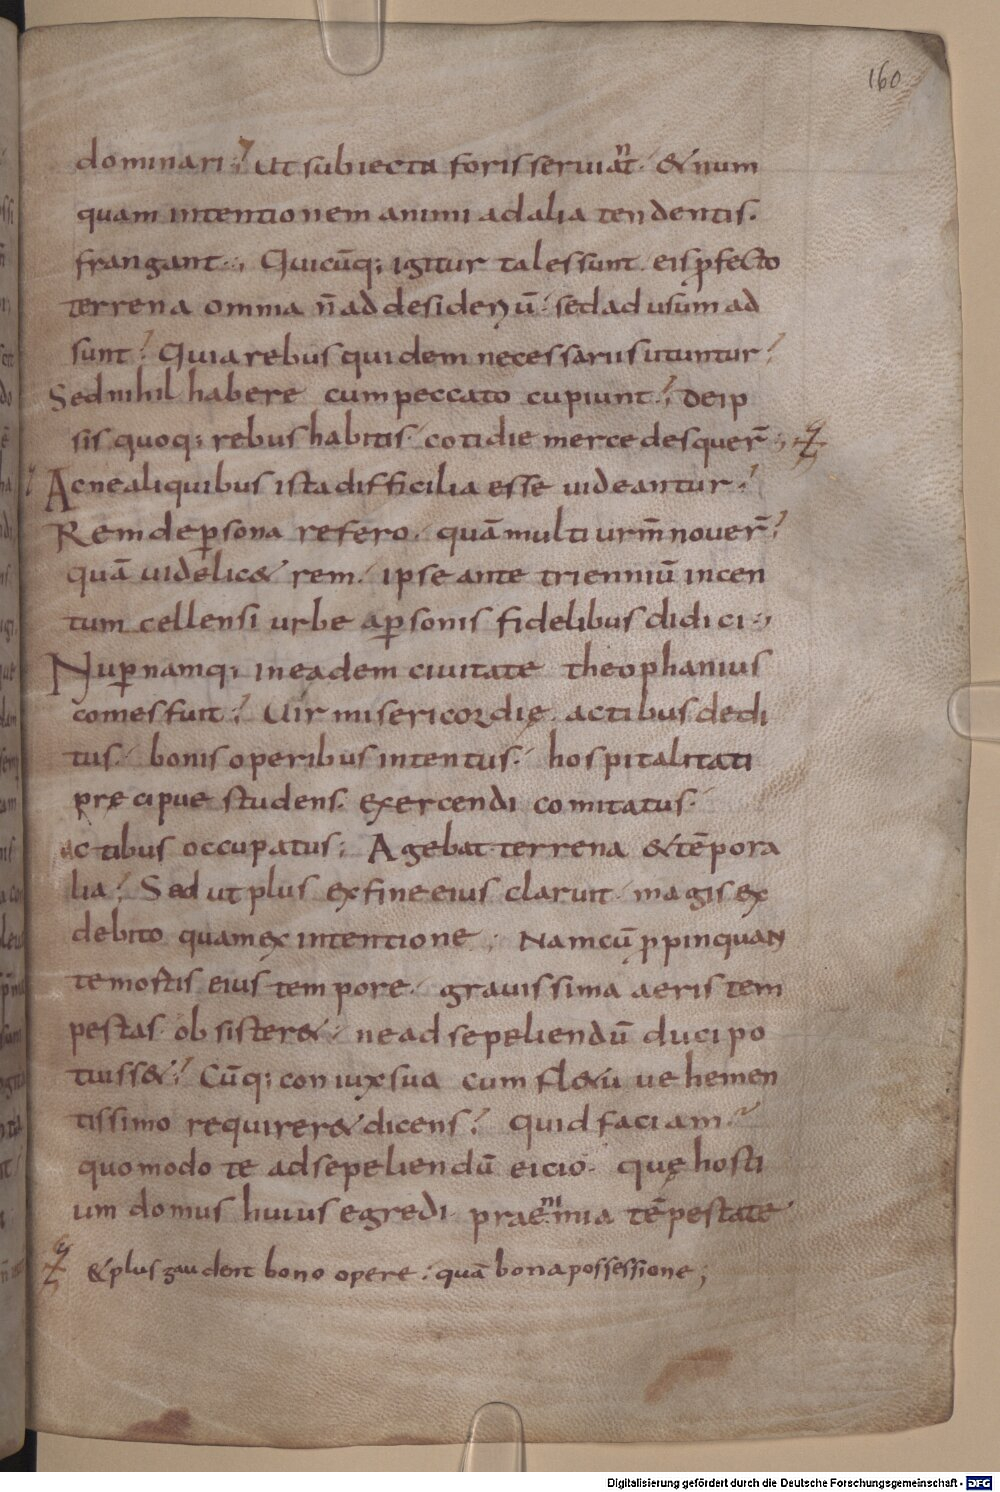 160
dominari; Ut subiecta foris seruiant. & num
quam intentionem animi ad alia tendentis.
frangant; Quicūq; igitur tales sunt. eis pfecto
terrena omnia n̄ ad desideriū. sed ad usūm ad
sunt; Quia rebus quidem necessariis utuntur;
Sed nihil habere cum peccato cupiunt; De ip
sis quoq; rebus habitis. cotidie mercedes quer̄;
Ac ne aliquibus ista difficilia esse uideantur;
Rem de psona refero. quā multi urm̄ nouer̄;
quā uidelic& rem. ipse ante trienniū in cen
tum cellensi urbe a psonis fidelibus didici;
Nup namq; in eadem ciuitate theophanius
comes fuit; Uir misericordię actibus dedi
tus. bonis operibus intentus. hospitalitati
pręcipue studens. exercendi comitatus.
actibus occupatus; Agebat terrena & tēpora
lia; Sed ut plus ex fine eius claruit. magis ex
debito quam ex intentione; Nam cū ppinquan
te mortis eius tempore. grauissima aeris tem
pestas obsister&. ne ad sepeliendū duci po
tuiss&; Cūq; coniux sua cum fl&u uehemen
tissimo requirer& dicens; Quid faciam.
quomodo te ad sepeliendū eicio. quę hosti
um domus huius egredi prae nimia tēpestate
& plus gaudent bono opere. quā bona possessione;
Digitalisierung gefördert durch die Deutsche Forschungsgemeinschaft - DFG